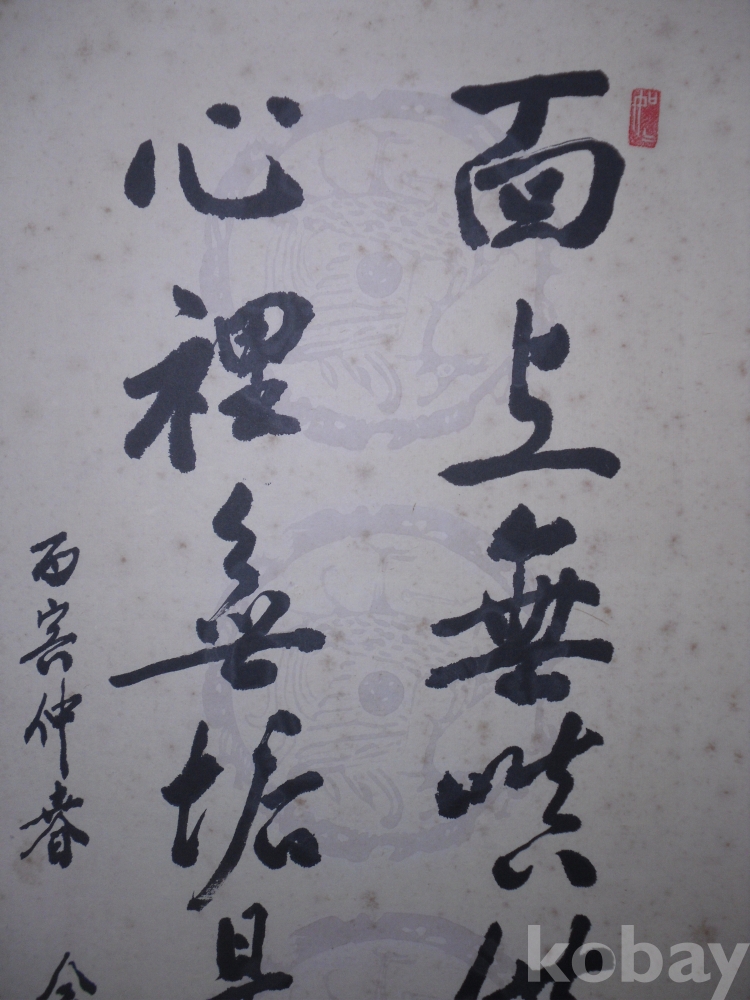 面上無嗔
心裡無垢
丙寅仲春
kobay